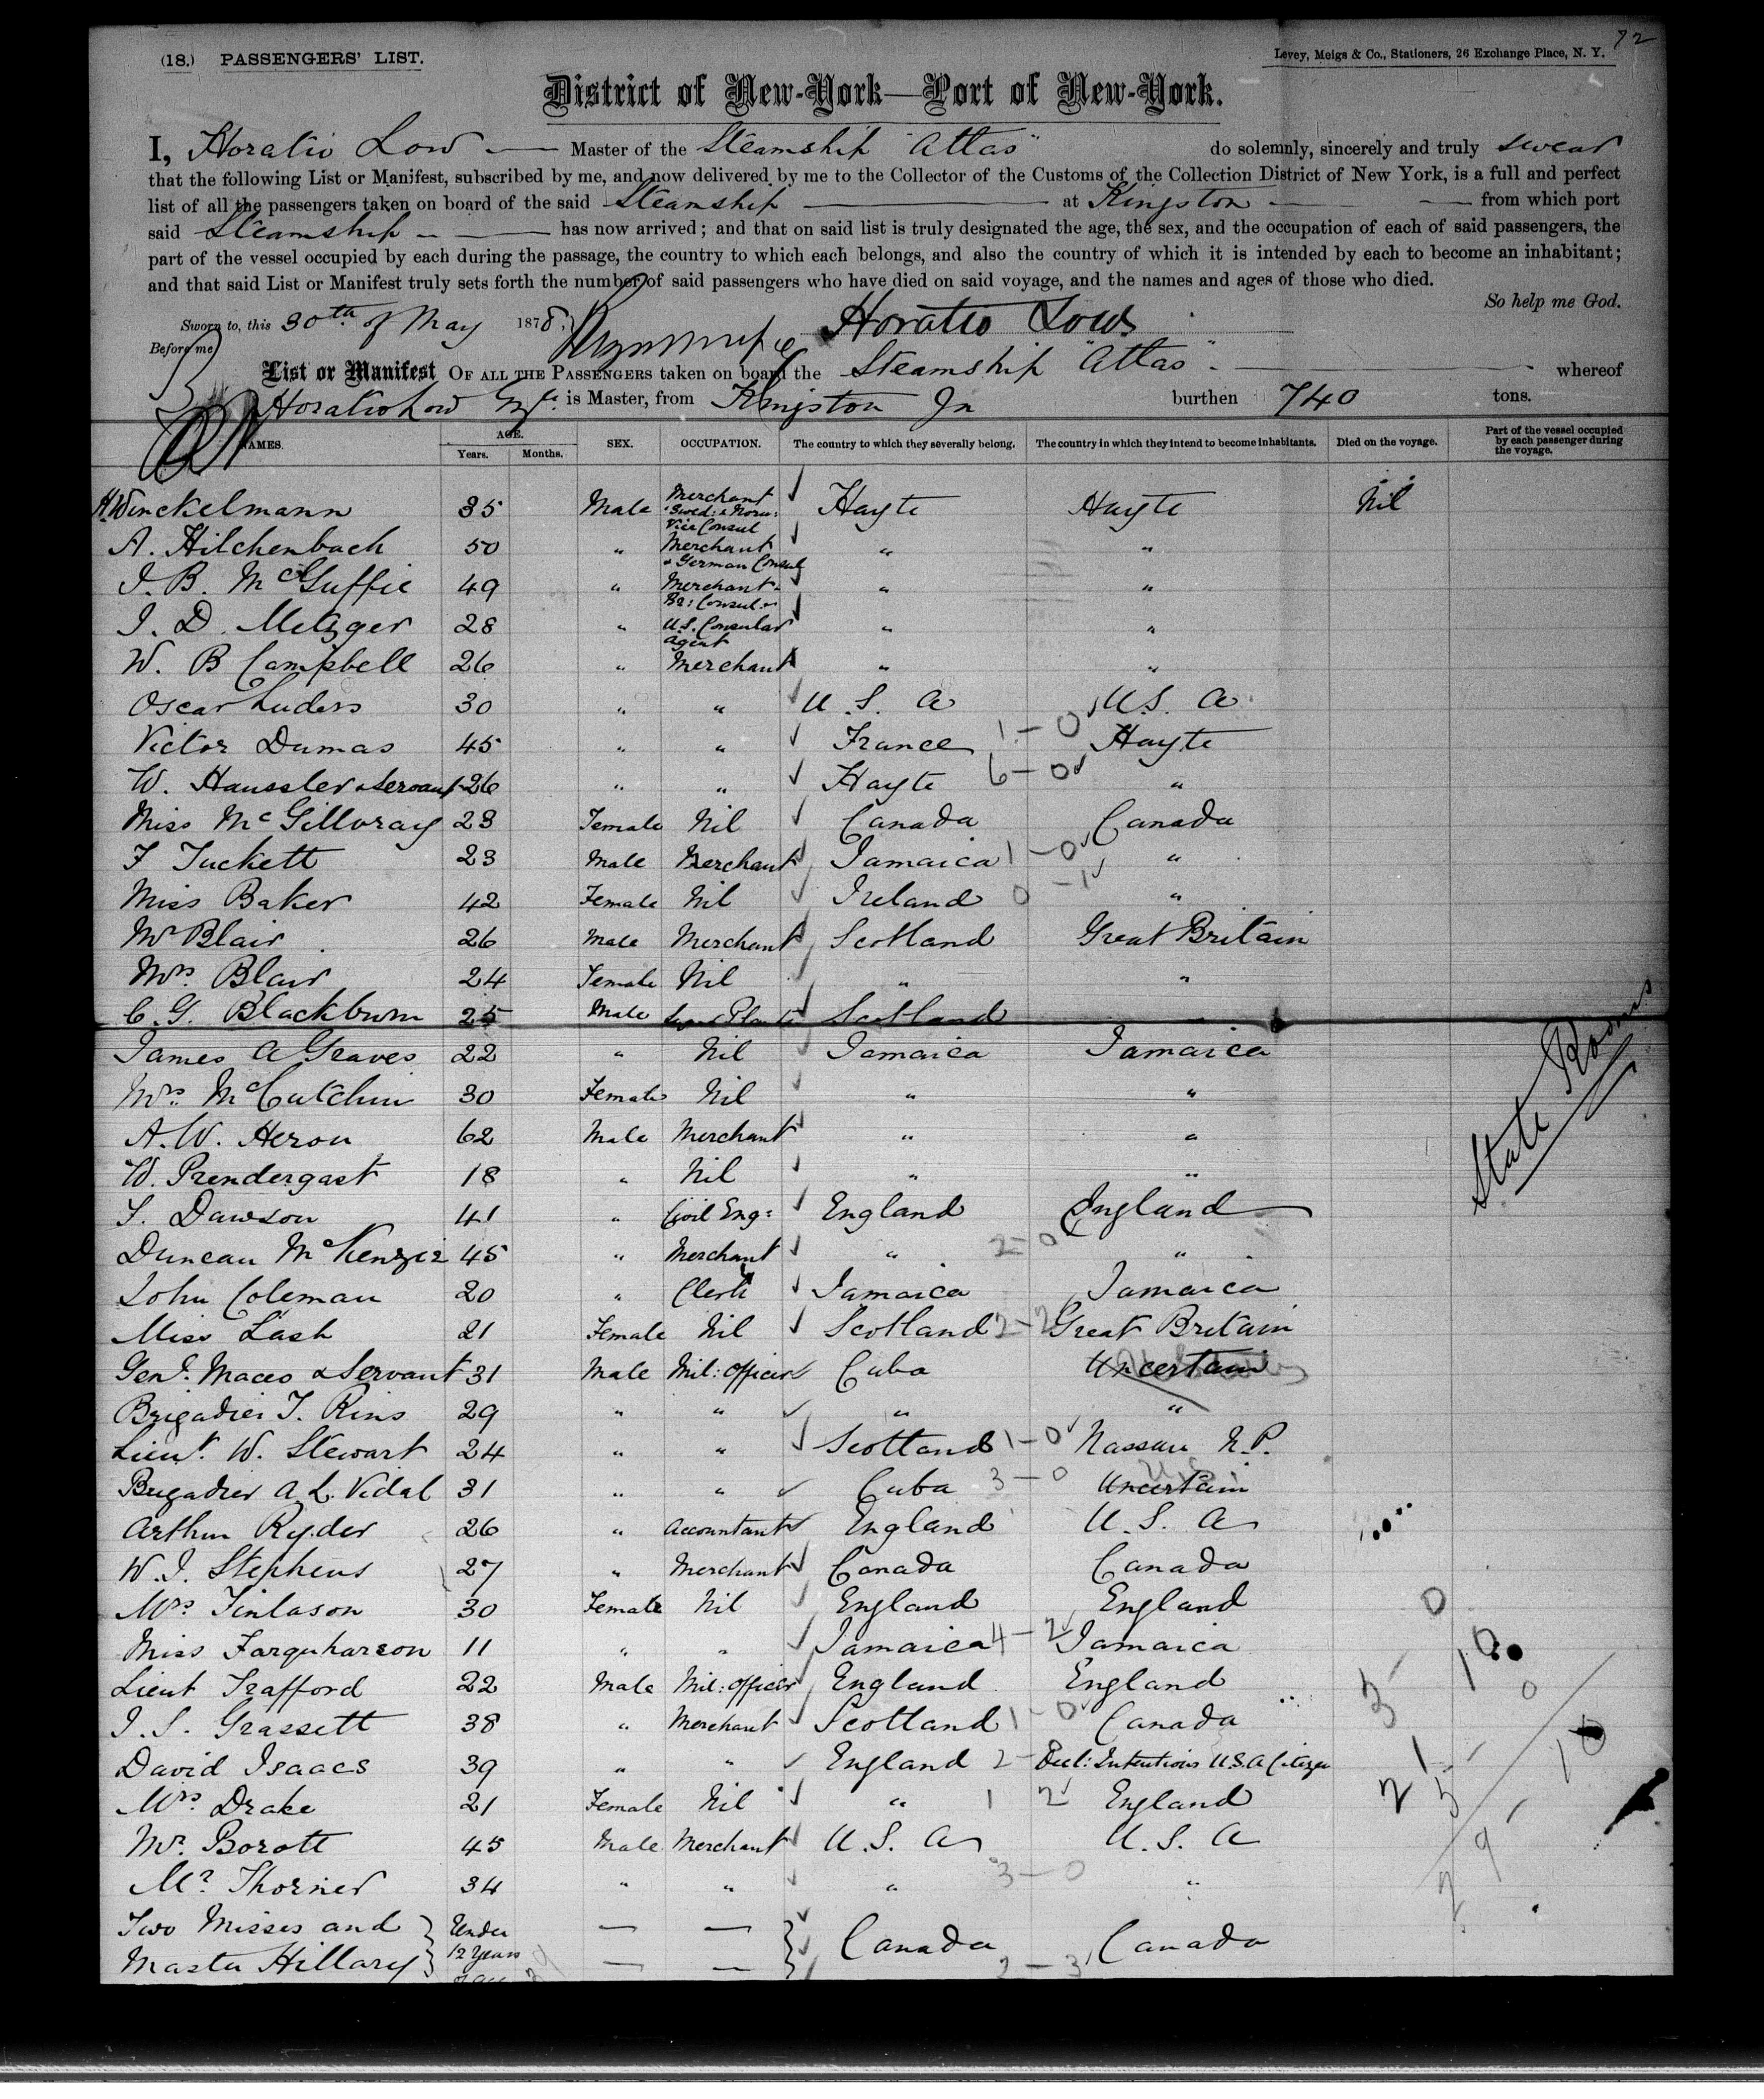 72
(18.) PASSENGERS' LIST. Levey, Meigs & Co., Stationers, 26 Exchange Place, N. Y.
District of New-York—Port of New-York.
I, Horatio Low Master of the Steamship "Atlas" do solemnly, sincerely and truly swear
that the following List or Manifest, subscribed by me, and now delivered by me to the Collector of the Customs of the Collection District of New York, is a full and perfect
list of all the passengers taken on board of the said Steamship at Kingston from which port
said Steamship has now arrived; and that on said list is truly designated the age, the sex, and the occupation of each of said passengers, the
part of the vessel occupied by each during the passage, the country to which each belongs, and also the country of which it is intended by each to become an inhabitant;
and that said List or Manifest truly sets forth the number of said passengers who have died on said voyage, and the names and ages of those who died.
So help me God.
Sworn to, this 30th of May 1878, Horatio Low
Before me
List or Manifest OF ALL THE PASSENGERS taken on board the Steamship "Atlas" whereof
Horatio Low is Master, from Kingston Ja burthen 740 tons.
NAMES. AGE. Years. Months. SEX. OCCUPATION. The country to which they severally belong. The country in which they intend to become inhabitants. Died on the voyage. Part of the vessel occupied by each passenger during the voyage.
H Winckelmann 35 Male Merchant Swed: & Norw: Vice Consul Hayte Hayte Nil
A. Hilchenbach 50 " Merchant & German Consul " "
J. B. McGuffie 49 " Merchant Br: Consul " "
J. D. Metzger 28 " U.S. Consular Agent " "
W. B Campbell 26 " Merchant " "
Oscar Luders 30 " " U. S. A U. S. A
Victor Dumas 45 " " France 1-0 Hayte
W. Haussler & Servant 26 " " Hayte 6-0 "
Miss McGillvray 23 Female Nil Canada Canada
F Tuckett 23 Male Merchant Jamaica 1-0 "
Miss Baker 42 Female Nil Ireland 0-1 "
Mr Blair 26 Male Merchant Scotland Great Britain
Mrs. Blair 24 Female Nil " "
C. G. Blackburn 25 Male Scotland "
James A Graves 22 " Nil Jamaica Jamaica
Mrs. McCutchin 30 Female Nil " "
A. W. Heron 62 Male Merchant " "
W. Prendergast 18 " Nil " "
S. Dawson 41 " Civil Eng: England England
Duncan McKenzie 45 " Merchant " 2-0 "
John Coleman 20 " Clerk Jamaica Jamaica
Miss Lash 21 Female Nil Scotland 2-2 Great Britain
Genl. Maceo & Servant 31 Male Mil: Officer Cuba Uncertain
Brigadier F. Rins 29 " " " "
Lieut. W. Stewart 24 " " Scotland 1-0 Nassau N.P.
Brigadier A. L. Vidal 31 " " Cuba 3-0 Uncertain
Arthur Ryder 26 " Accountant England U. S. A
W. J. Stephens 27 " Merchant Canada Canada
Mrs. Finlason 30 Female Nil England England
Miss Farquharson 11 " " Jamaica 4-2 Jamaica
Lieut Trafford 22 Male Mil: Officer England England
J. S. Grassett 38 " Merchant Scotland 1-0 Canada
David Isaacs 39 " " England 2- Decl: Intentions U.S.A Citizen
Mrs. Drake 21 Female Nil " 1 2 England
Mr. Borott 45 Male Merchant U. S. A U. S. A
Mr. Thorner 34 " " " 3-0 "
Two Misses and Under — — Canada Canada
Master Hillary 12 Years — — 2-3
State Rooms